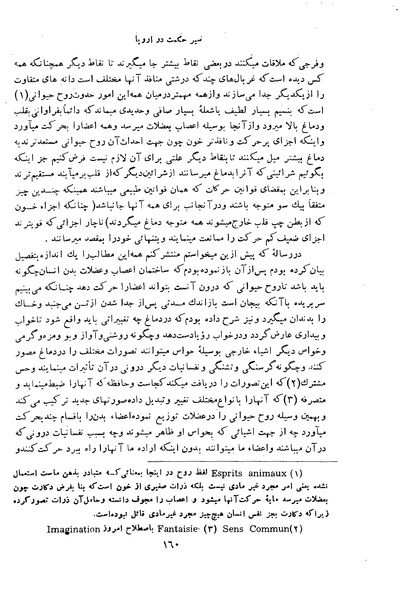 سیر حکمت در اروپا
وفرجی که ملاقات میکنند در بعضی نقاط بیشتر جا میگیرند تا نقاط دیگر همچنانکه همه
کس دیده است که غربال‌های چند که درشتی منافذ آنها مختلف است دانه های متفاوت
را از یکدیگر جدا می‌سازند و از همه مهمتر در میان همه این امور حدوث روح حیوانی (۱)
است که بنسیم بسیار لطیف یا شعلهٔ بسیار صافی و حدیدی میماند که دائماً بفراوانی بقلب
ودماغ بالا میرود و از آنجا بوسیله اعصاب بعضلات میرسد وهمه اعضا را بحرکت میآورد
و اینکه اجزای پر حرکت و نافذتر خون چون جهت احداث آن روح حیوانی مستعدترند به
دماغ بیشتر میل میکنند تا بنقاط دیگر علتی برای آن لازم نیست فرض کنیم جز اینکه
بگوئیم شرائینی که آنرا بدماغ میرسانند از شرائین دیگر که از قلب بر میآیند مستقیم‌ترند
و بنا بر این بمقضای قوانین حرکات که همان قوانین طبیعی میباشند همینکه چندین چیز
متفقاً بیك سو متوجه باشند و در آنجانب برای همه آنها جا نباشد (چنانکه اجزاء خون
که از بطن چپ قلب خارج میشوند همه متوجه دماغ میگردند) ناچار اجزائی که قویترند
اجزای ضعیف کم حرکت را ممانعت مینمایند و بتنهائی خود را بمقصد میرسانند .
در رسالهٔ که پیش از این میخواستم منتشر کنم همه این مطالب را یك اندازه بتفصیل
بیان کرده بودم پس از آن باز نموده بودم که ساختمان اعصاب وعضلات بدن انسان چگونه
باید باشد تا روح حیوانی که درون آنست بتواند اعضا را حرکت دهد چنانکه می‌بینیم
سر بریده با آنکه بیجان است باز اندك مدتی پس از جدا شدن از تن می‌جنبد وخاك
را بدندان میگیرد ونیز شرح داده بودم که در دماغ چه تغییراتی باید واقع شود تا خواب
و بیداری عارض گردد ودر خواب رؤیا دست دهد وچگونه روشنی و آواز و بو و مزه و گرمی
وخواص دیگر اشیاء خارجی بوسیلهٔ حواس میتوانند تصورات مختلف را در دماغ مصور
کنند وچگونه گرسنگی وتشنگی و نفسانیات دیگر درونی در آن تأثیرات مینمایند وحس
مشترك (۲) که این تصورات را دریافت میکند کجاست وحافظه که آنها را ضبط مینماید و
متصرفه (۳) که آنها را با انواع مختلف تغییر وتبدیل داده صورتهای جدید ترکیب می‌کند
وبهمین وسیله روح حیوانی را در عضلات توزیع نموده اعضاء بدن را باقسام چند بحرکت
میآورد چه از جهت اشیائی که بحواس او ظاهر میشوند وچه بسبب نفسانیات درونی که
در آن میباشند و اعضاء ما میتوانند بدون اینکه اراده ما آنها را راه ببرد حرکت کنند و
(۱) Esprits animaux لفظ روح در اینجا بمعنائی که متبادر بذهن ماست استعمال
نشده یعنی امر مجرد غیر مادی نیست بلکه ذرات صغیری از خون است که بنا بفرض دکارت چون
بعضلات میرسد مایهٔ حرکت آنها میشود و اعصاب را مجوف دانسته و حامل آن ذرات تصور کرده
زیرا که دکارت بجز نفس انسان هیچ چیز مجرد غیر مادی قائل نبوده است.
(۲) Sens Commun (۳) Fantaisie باصطلاح امروز Imagination
۱۶۰